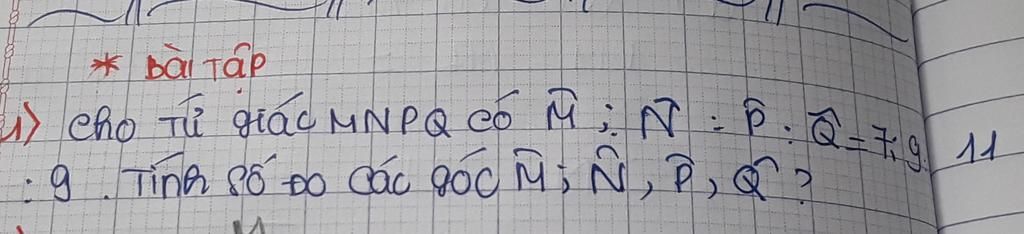 * Bài Tập
1) Cho Tứ giác MNPQ có M̂ : N̂ : P̂ : Q̂ = 7 : 9 : 11
: 9 . Tính số đo các góc M̂ ; N̂ , P̂ , Q̂ ?